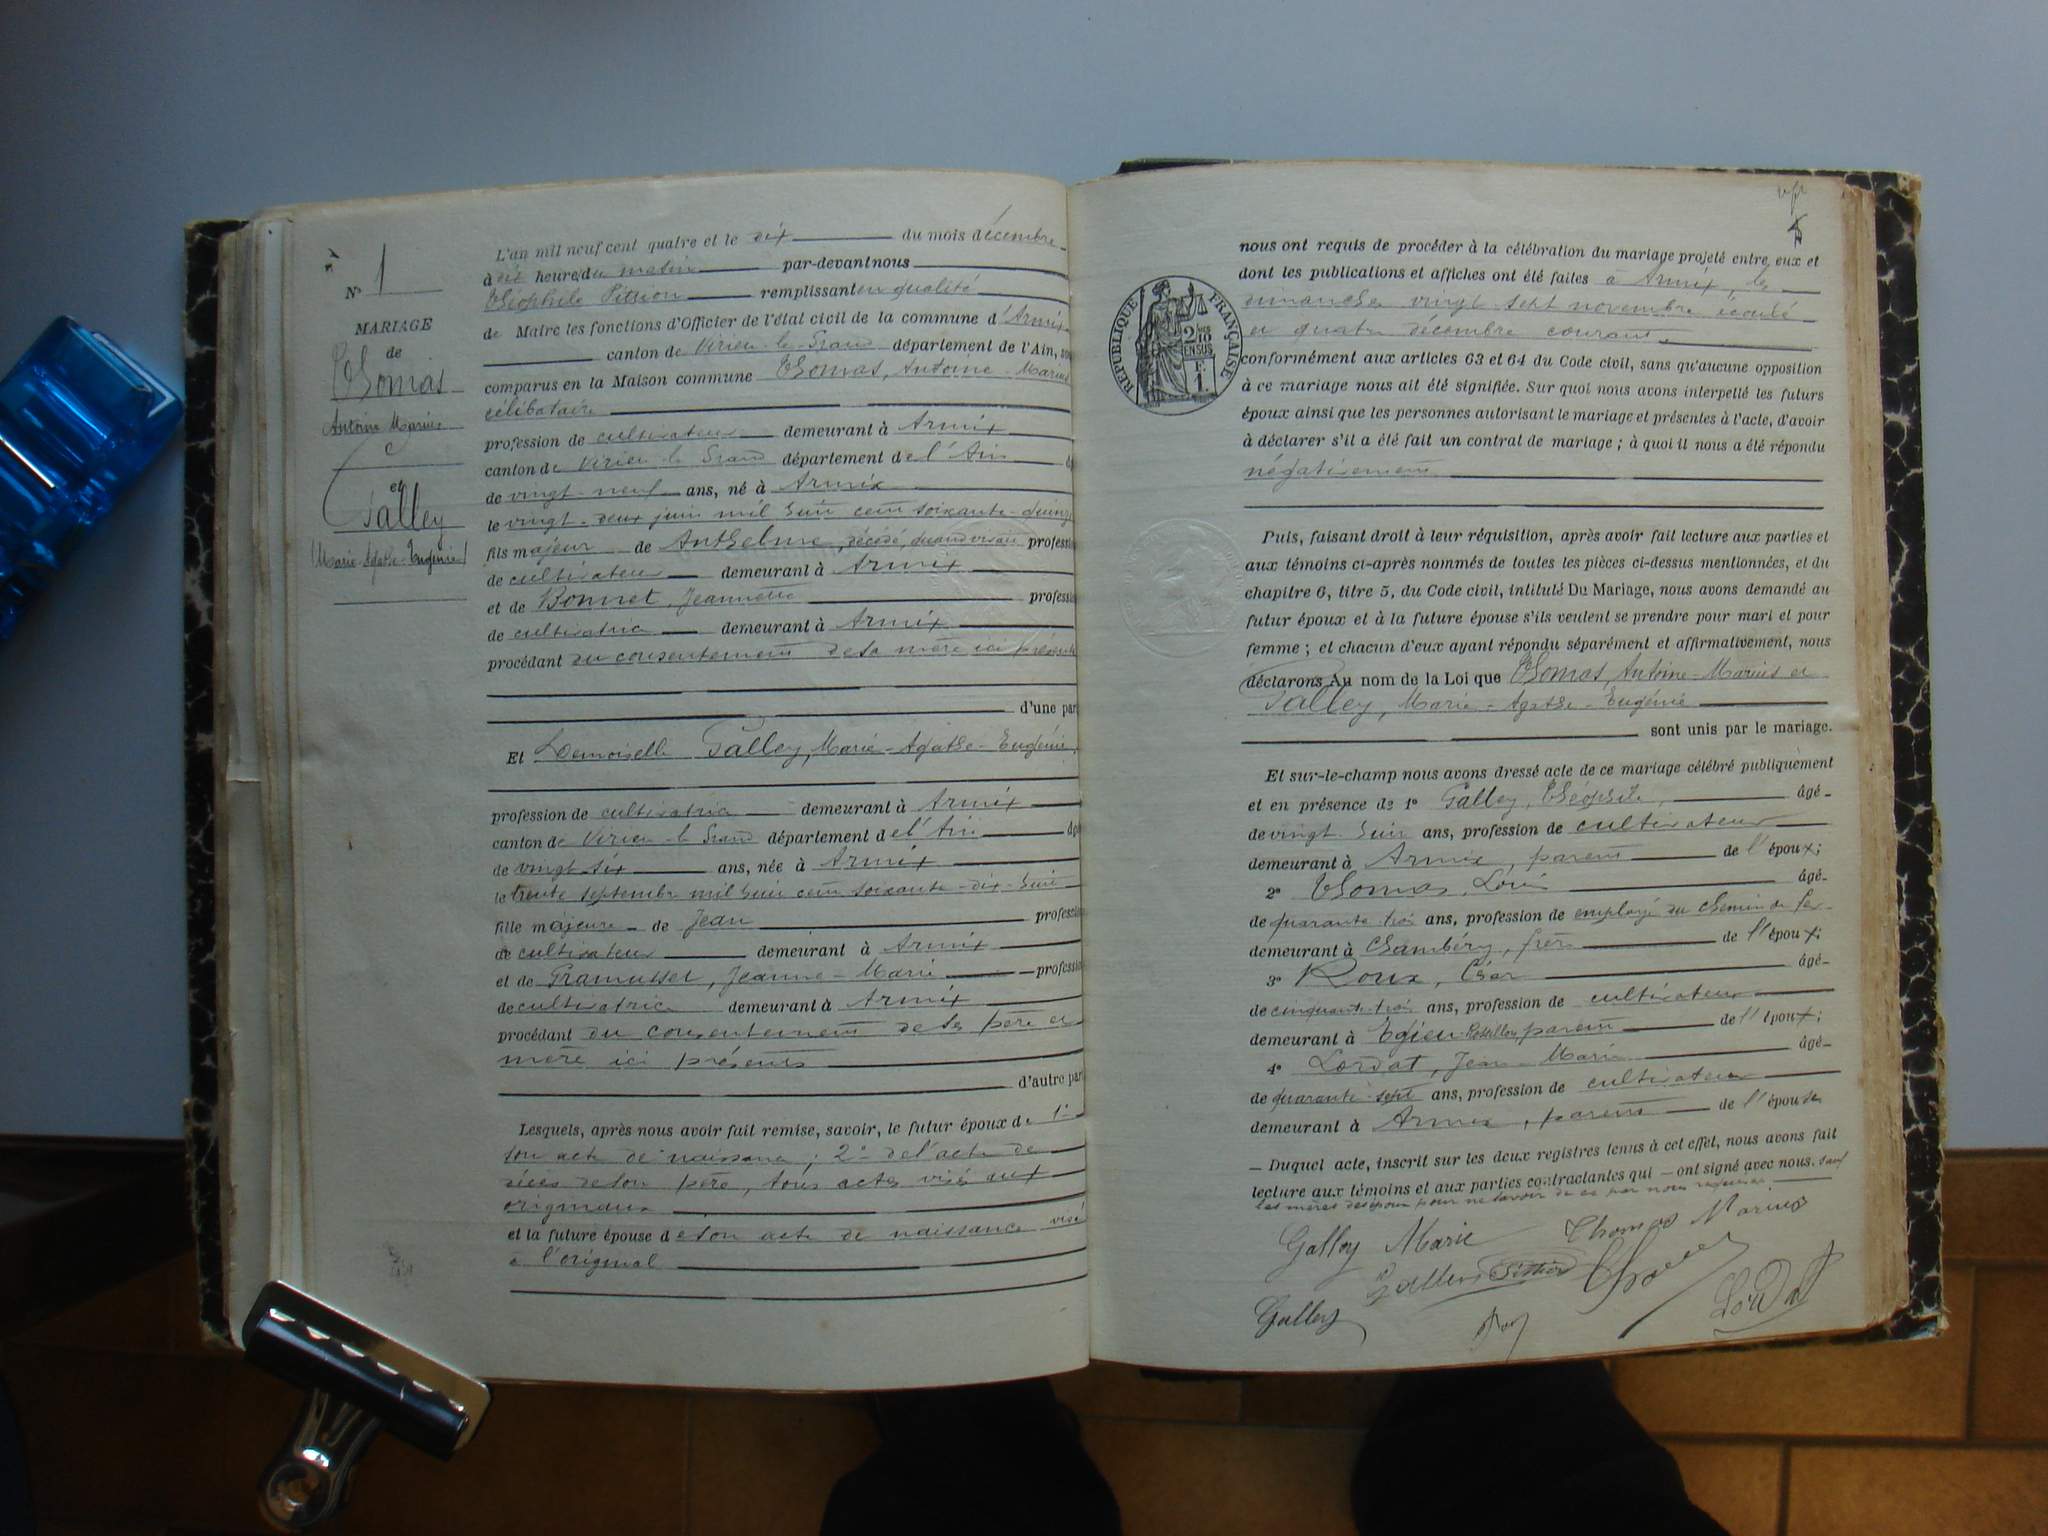 N° 1
MARIAGE
de
Thomas
Antoine Marius
et
Galley
(Marie-Agathe-Eugénie)
L'an mil neuf cent quatre et le dix du mois décembre
à dix heure du matin par-devant nous
Théophile Pittion remplissant en qualité
de Maire les fonctions d'Officier de l'état civil de la commune d'Armix
canton de Virieu-le-Grand département de l'Ain, son
comparus en la Maison commune Thomas, Antoine-Marius
célibataire
profession de cultivateur demeurant à Armix
canton de Virieu-le-Grand département de l'Ain
de vingt-neuf ans, né à Armix
le vingt-deux juin mil huit cent soixante-quinz
fils majeur de Anthelme, décédé, quand vivait professi
de cultivateur demeurant à Armix
et de Bonnet, Jeannette professi
de cultivatrice demeurant à Armix
procédant du consentement de sa mère ici présente
d'une par
Et Demoiselle Galley, Marie-Agathe-Eugénie,
profession de cultivatrice demeurant à Armix
canton de Virieu-le-Grand département de l'Ain âgé
de vingt-six ans, née à Armix
le trente septembre mil huit cent soixante-dix-huit
fille majeure de Jean professio
de cultivateur demeurant à Armix
et de Gramusset, Jeanne-Marie professio
de cultivatrice demeurant à Armix
procédant du consentement de ses père et
mère ici présents
d'autre par
Lesquels, après nous avoir fait remise, savoir, le futur époux de 1°
son acte de naissance ; 2° de l'acte de
décès de son père, tous actes visés aux
originaux
et la future épouse de son acte de naissance visé
à l'original
nous ont requis de procéder à la célébration du mariage projeté entre eux et
dont les publications et affiches ont été faites à Armix, les
dimanches vingt-sept novembre écoulé
et quatre décembre courant,
RÉPUBLIQUE FRANÇAISE
2/10 EN SUS
1 F.
conformément aux articles 63 et 64 du Code civil, sans qu'aucune opposition
à ce mariage nous ait été signifiée. Sur quoi nous avons interpellé les futurs
époux ainsi que les personnes autorisant le mariage et présentes à l'acte, d'avoir
à déclarer s'il a été fait un contrat de mariage ; à quoi il nous a été répondu
négativement
Puis, faisant droit à leur réquisition, après avoir fait lecture aux parties et
aux témoins ci-après nommés de toutes les pièces ci-dessus mentionnées, et du
chapitre 6, titre 5, du Code civil, intitulé Du Mariage, nous avons demandé au
futur époux et à la future épouse s'ils veulent se prendre pour mari et pour
femme ; et chacun d'eux ayant répondu séparément et affirmativement, nous
déclarons Au nom de la Loi que Thomas, Antoine-Marius et
Galley, Marie-Agathe-Eugénie
sont unis par le mariage.
Et sur-le-champ nous avons dressé acte de ce mariage célébré publiquement
et en présence de 1° Galley, Théophile, âgé
de vingt-huit ans, profession de cultivateur
demeurant à Armix, parent de l'époux;
2° Thomas, Louis âgé
de quarante-trois ans, profession de employé au chemin de fer
demeurant à Chambéry, frère de l'époux;
3° Roux, César âgé
de cinquante-trois ans, profession de cultivateur
demeurant à Egieu-Rossillon, parent de l'époux;
4° Lordat, Jean-Marie âgé
de quarante-sept ans, profession de cultivateur
demeurant à Armix, parent de l'épouse
— Duquel acte, inscrit sur les deux registres tenus à cet effet, nous avons fait
lecture aux témoins et aux parties contractantes qui ont signé avec nous. sauf
les mères des époux pour ne savoir de ce par nous requises
Galley Marie Thomas Marius
Galley Pittion Thomas
Galley Lordat